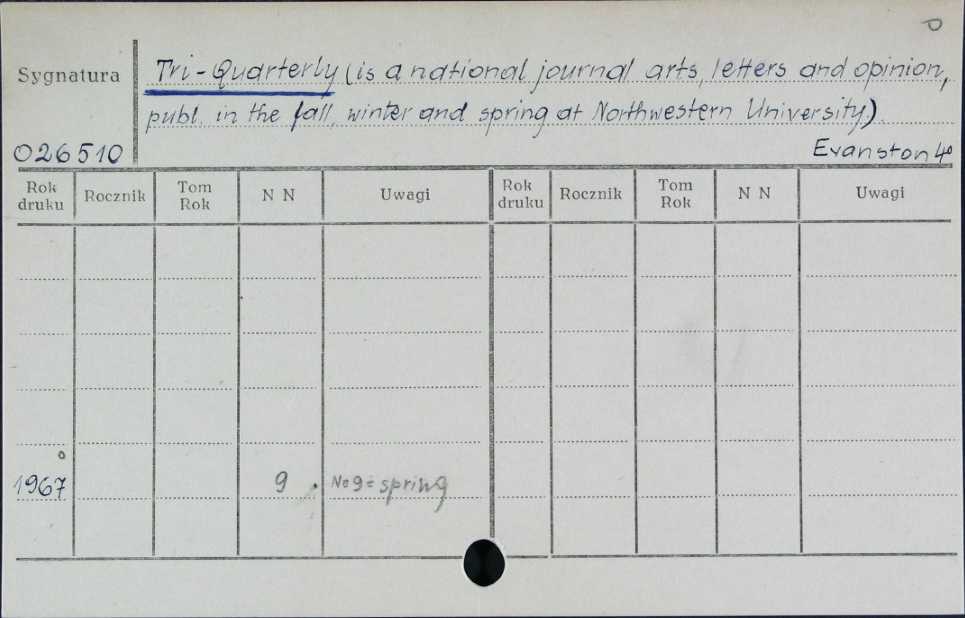 D
Sygnatura
Tri-Quarterly (is a national journal arts, letters and opinion,
publ. in the fall, winter and spring at Northwestern University)
026510
Evanston 4º
Rok druku Rocznik Tom Rok N N Uwagi Rok druku Rocznik Tom Rok N N Uwagi
1967 9 No 9 = spring